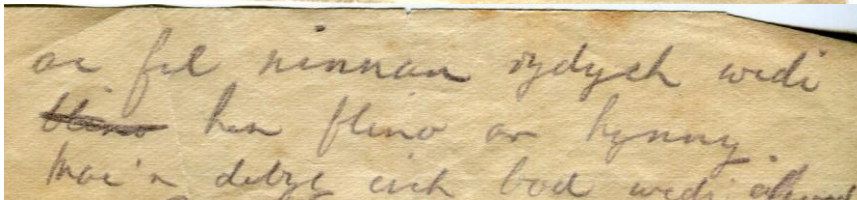 ac fel ninnau rydych wedi
blino hen flino ar hynny.
Mae'n debyg eich bod wedi